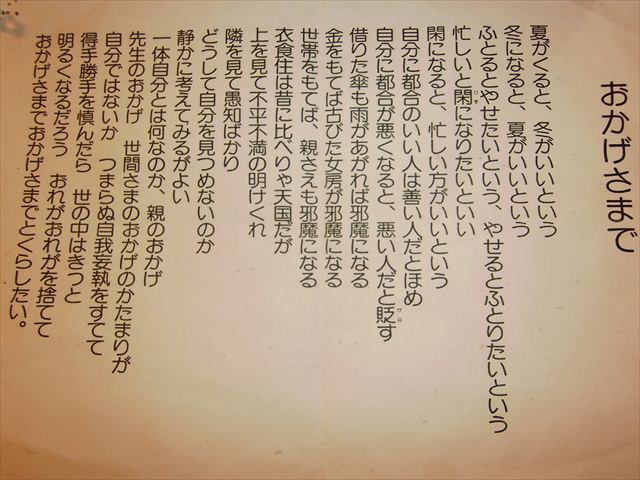 おかげさまで
夏がくると、冬がいいという
冬になると、夏がいいという
ふとるとやせたいという、やせるとふとりたいという
忙しいと閑になりたいといい
閑になると、忙しい方がいいという
自分に都合のいい人は善い人だとほめ
自分に都合が悪くなると、悪い人だと貶す
借りた傘も雨があがれば邪魔になる
金をもてば古びた女房が邪魔になる
世帯をもてば、親さえも邪魔になる
衣食住は昔に比べりゃ天国だが
上を見て不平不満の明けくれ
隣を見て愚知ばかり
どうして自分を見つめないのか
静かに考えてみるがよい
一体自分とは何なのか、親のおかげ
先生のおかげ　世間さまのおかげのかたまりが
自分ではないか　つまらぬ自我妄執をすてて
得手勝手を慎んだら　世の中はきっと
明るくなるだろう　おれがおれがを捨てて
おかげさまでおかげさまでとくらしたい。